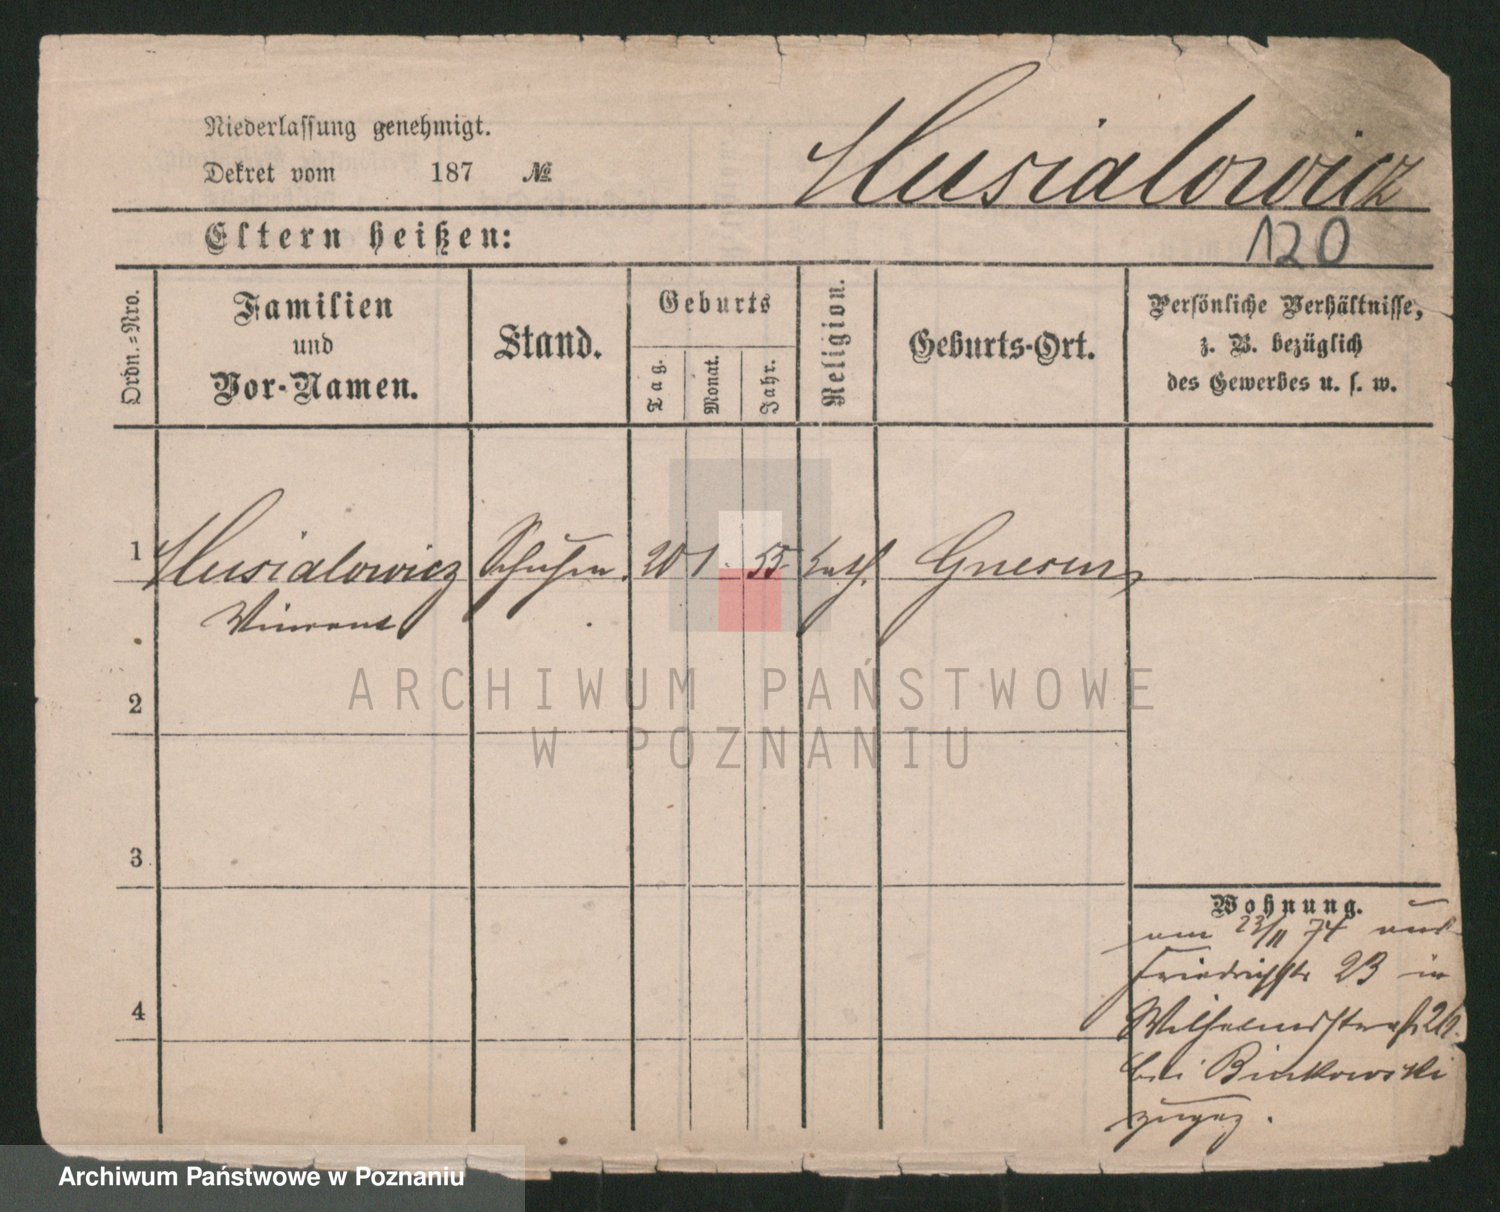 Niederlassung genehmigt.
Dekret vom 187 №
Musialowicz
Eltern heißen:
120
Ordn.=Nro.
Familien
und
Vor-Namen.
Stand.
Geburts
Tag.
Monat.
Jahr.
Religion.
Geburts-Ort.
Persönliche Verhältnisse,
z. B. bezüglich
des Gewerbes u. s. w.
1 Musialowicz 20 1. 55 kath. Gnesen
Vincent
ARCHIWUM PAŃSTWOWE
W POZNANIU
2
3
4
Wohnung.
am 23/11 74 aus
Friedrichstr 23 in
Wilhelmsstraße
bei Binkowski
zugez.
Archiwum Państwowe w Poznaniu